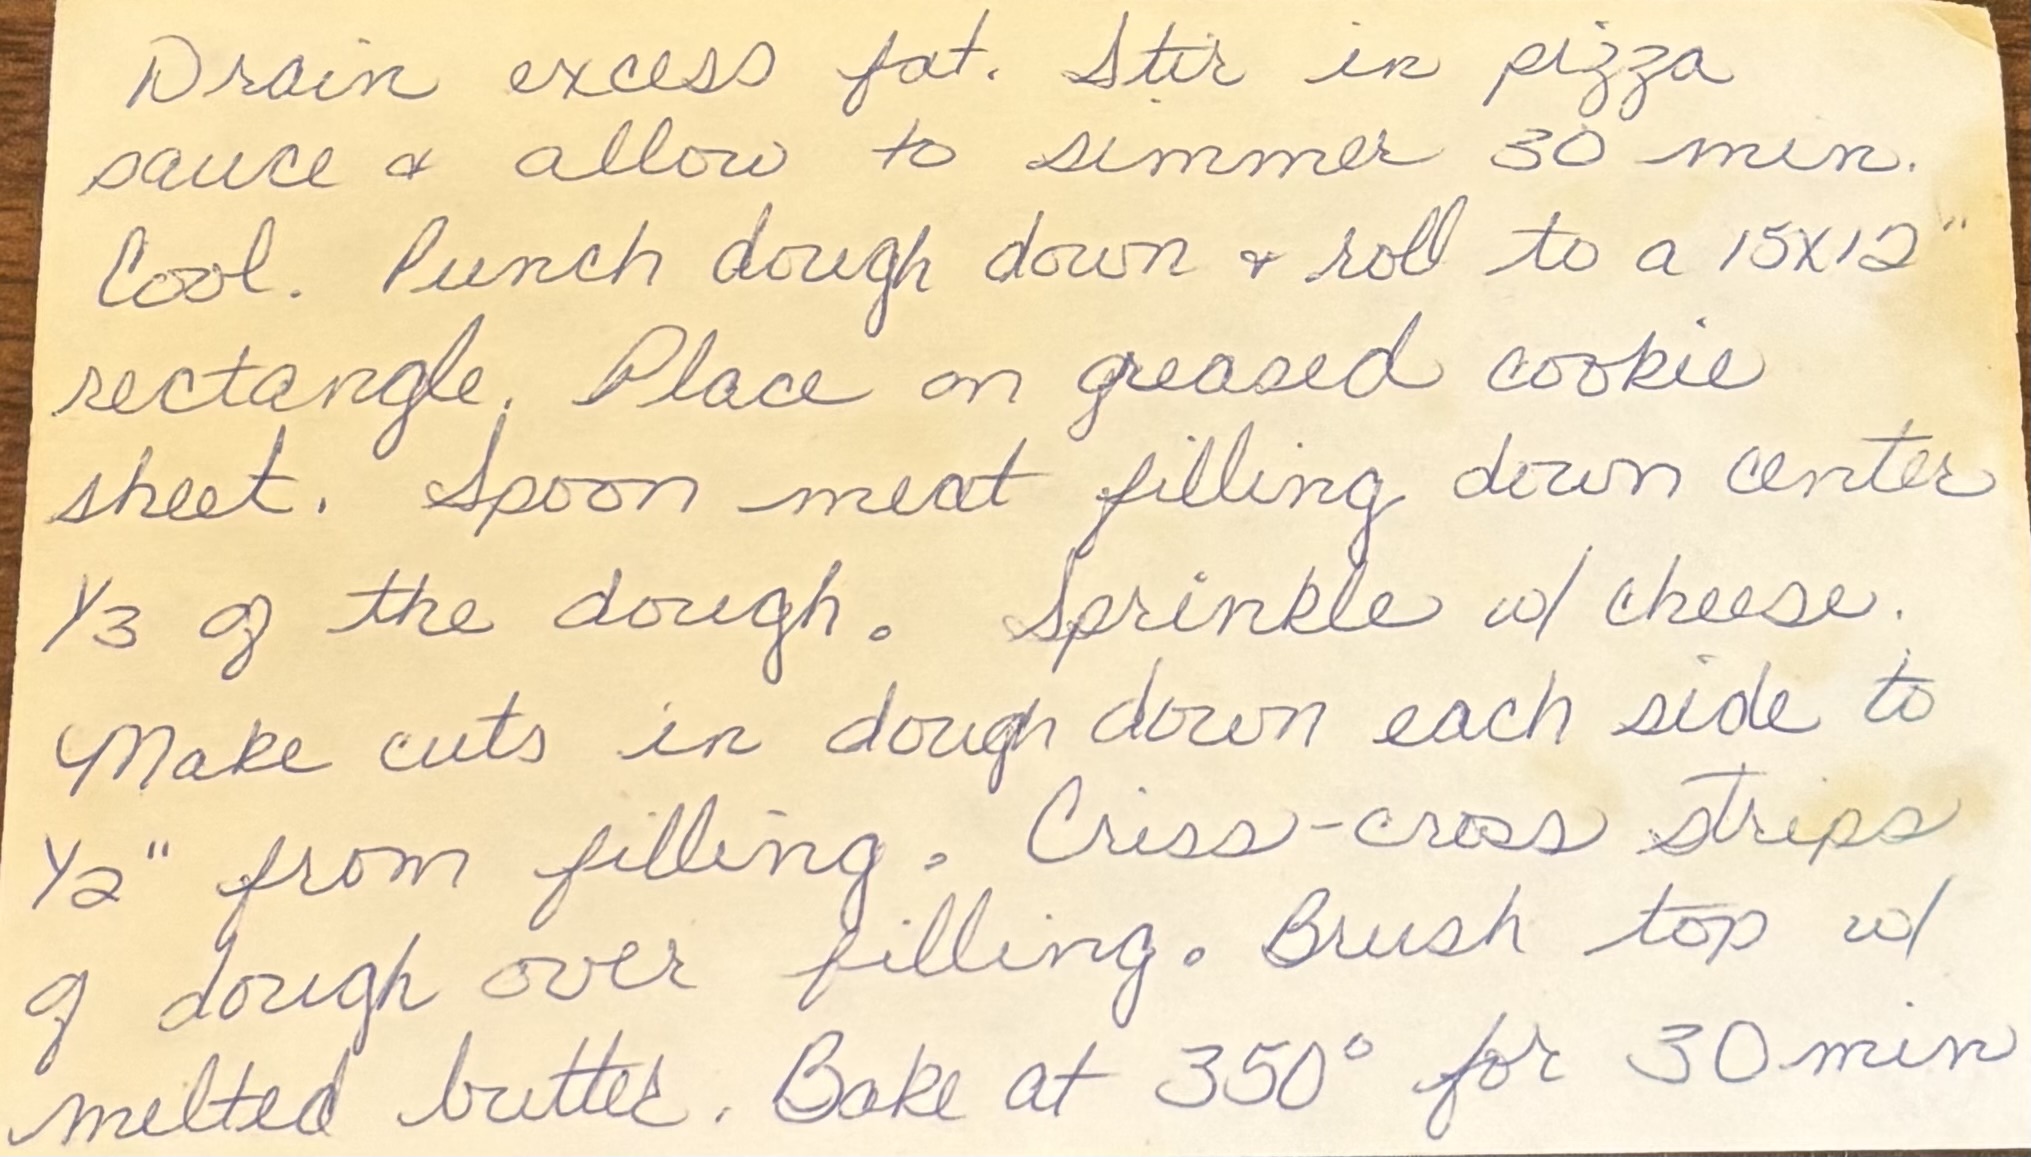 Drain excess fat. Stir in pizza
sauce & allow to simmer 30 min.
Cool. Punch dough down & roll to a 15x12"
rectangle. Place on greased cookie
sheet. Spoon meat filling down center
1/3 of the dough. Sprinkle w/ cheese.
Make cuts in dough down each side to
1/2" from filling. Criss-cross strips
of dough over filling. Brush top w/
melted butter. Bake at 350° for 30 min